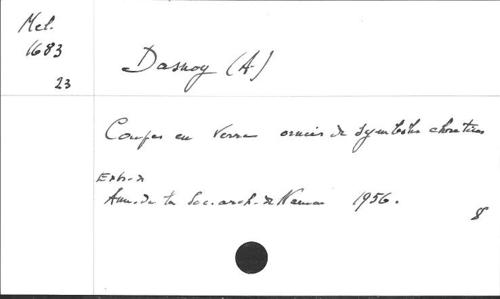 Mel.
1683
23
Dasnoy (A)
Coupes en verre ornées de symboles chrétiens
Extr. de
Ann. de la Soc. arch. de Namur 1956.
8